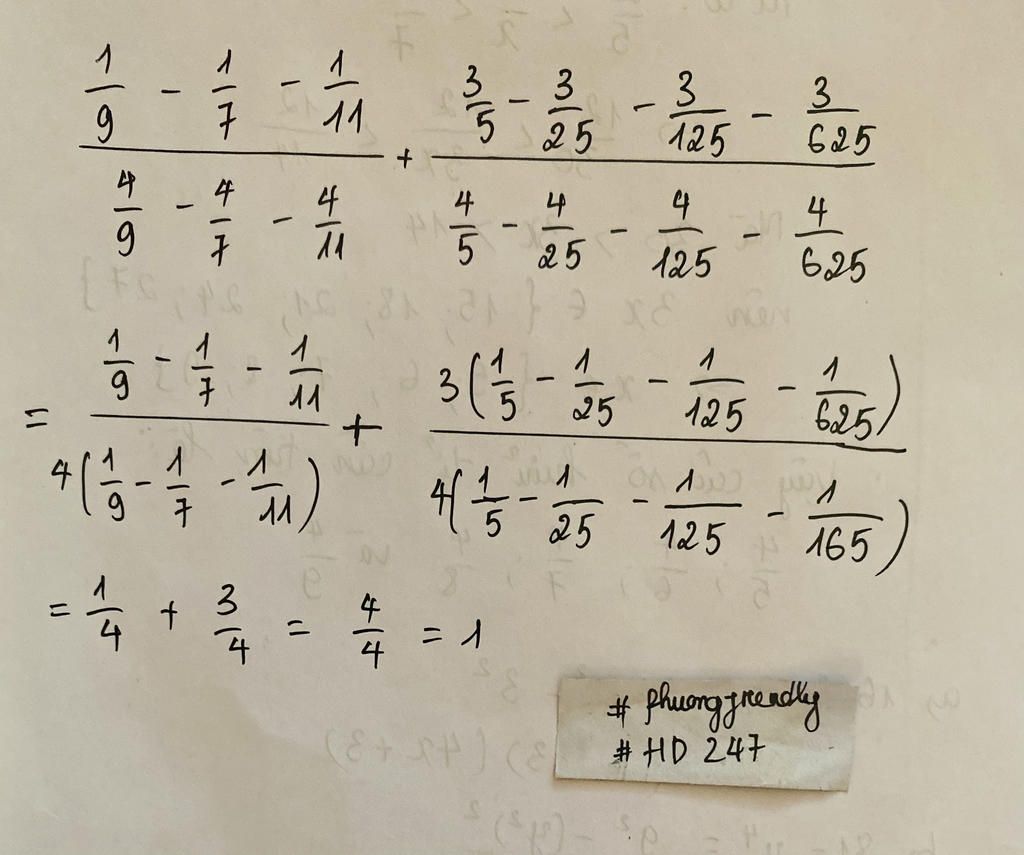 1/9 - 1/7 - 1/11 / 4/9 - 4/7 - 4/11 + 3/5 - 3/25 - 3/125 - 3/625 / 4/5 - 4/25 - 4/125 - 4/625
= 1/9 - 1/7 - 1/11 / 4(1/9 - 1/7 - 1/11) + 3(1/5 - 1/25 - 1/125 - 1/625) / 4(1/5 - 1/25 - 1/125 - 1/165)
= 1/4 + 3/4 = 4/4 = 1
# phuongfriendly
# HD 247